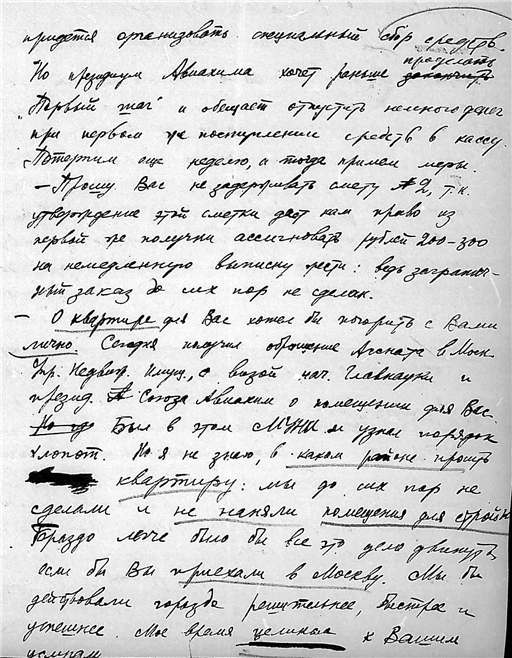 придется организовать специальный сбор средств.
Но президиум Авиахима хочет раньше проделать закончить
"Первый шаг" и обещает отпустить немного денег
при первом же поступлении средств в кассу.
Потерпим еще неделю, а тогда примем меры.
— Прошу Вас не задерживать смету №2, т.к.
утверждение этой сметки даст нам право из
первой же получки ассигновать рублей 200-300
на немедленную выписку жести: ведь загранич-
ный заказ до сих пор не сделан.
— О квартире для Вас хотел бы поговорить с Вами
лично. Сегодня получил обращение Асната в Моск.
Упр. Недвиж. Имущ., с визой нач. Главнауки и
презид. Союза Авиахим о помещении для Вас.
Был в этом МУНИ и узнал порядок
хлопот. Но я не знаю, в каком районе просить
квартиру: мы до сих пор не
сделали и не наняли помещения для стройки
Гораздо легче было бы все это дело двинуть,
если бы Вы приехали в Москву. Мы бы
действовали гораздо решительнее, быстрее и
успешнее. Мое время целиком к Вашим
услугам